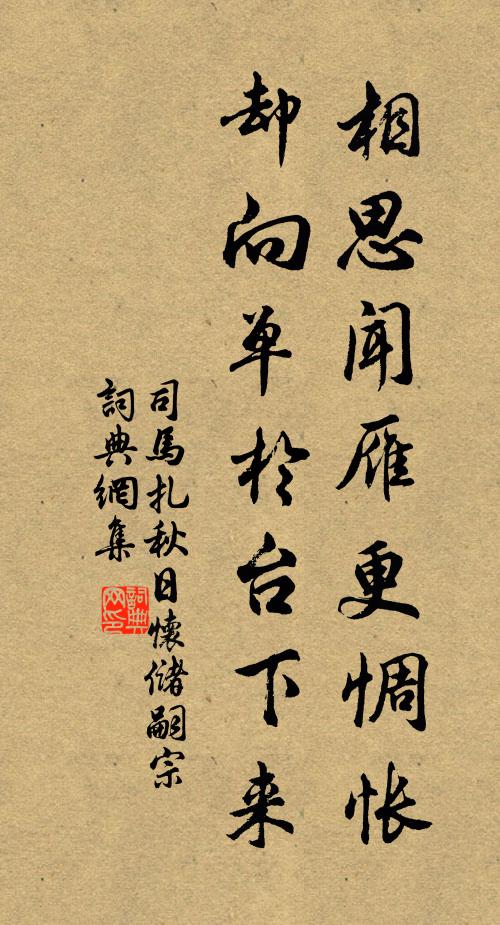 相思闻雁更惆怅
却向单於台下来
司馬扎秋日懷儲嗣宗
詞典網集
詞典网印